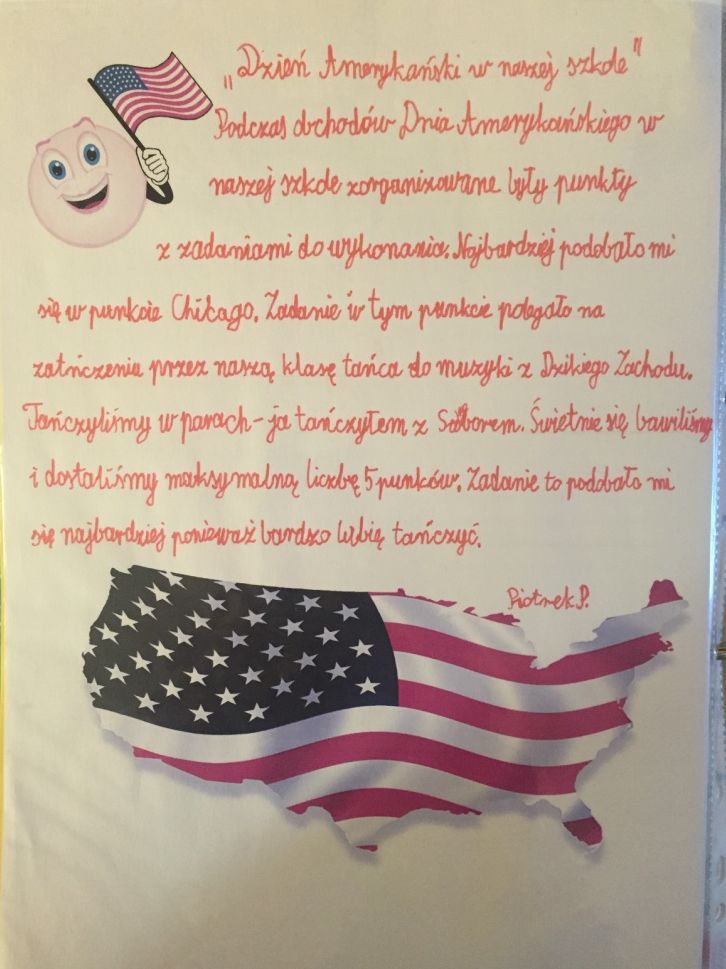 „Dzień Amerykański w naszej szkole"
Podczas obchodów Dnia Amerykańskiego w
naszej szkole zorganizowane były punkty
z zadaniami do wykonania. Najbardziej podobało mi
się w punkcie Chicago. Zadanie w tym punkcie polegało na
zatńczeniu przez naszą klasę tańca do muzyki z Dzikiego Zachodu.
Tańczyliśmy w parach - ja tańczyłem z Soborem. Świetnie się bawiliśmy
i dostaliśmy maksymalną liczbę 5 punków. Zadanie to podobało mi
się najbardziej ponieważ bardzo lubię tańczyć.
Piotrek P.